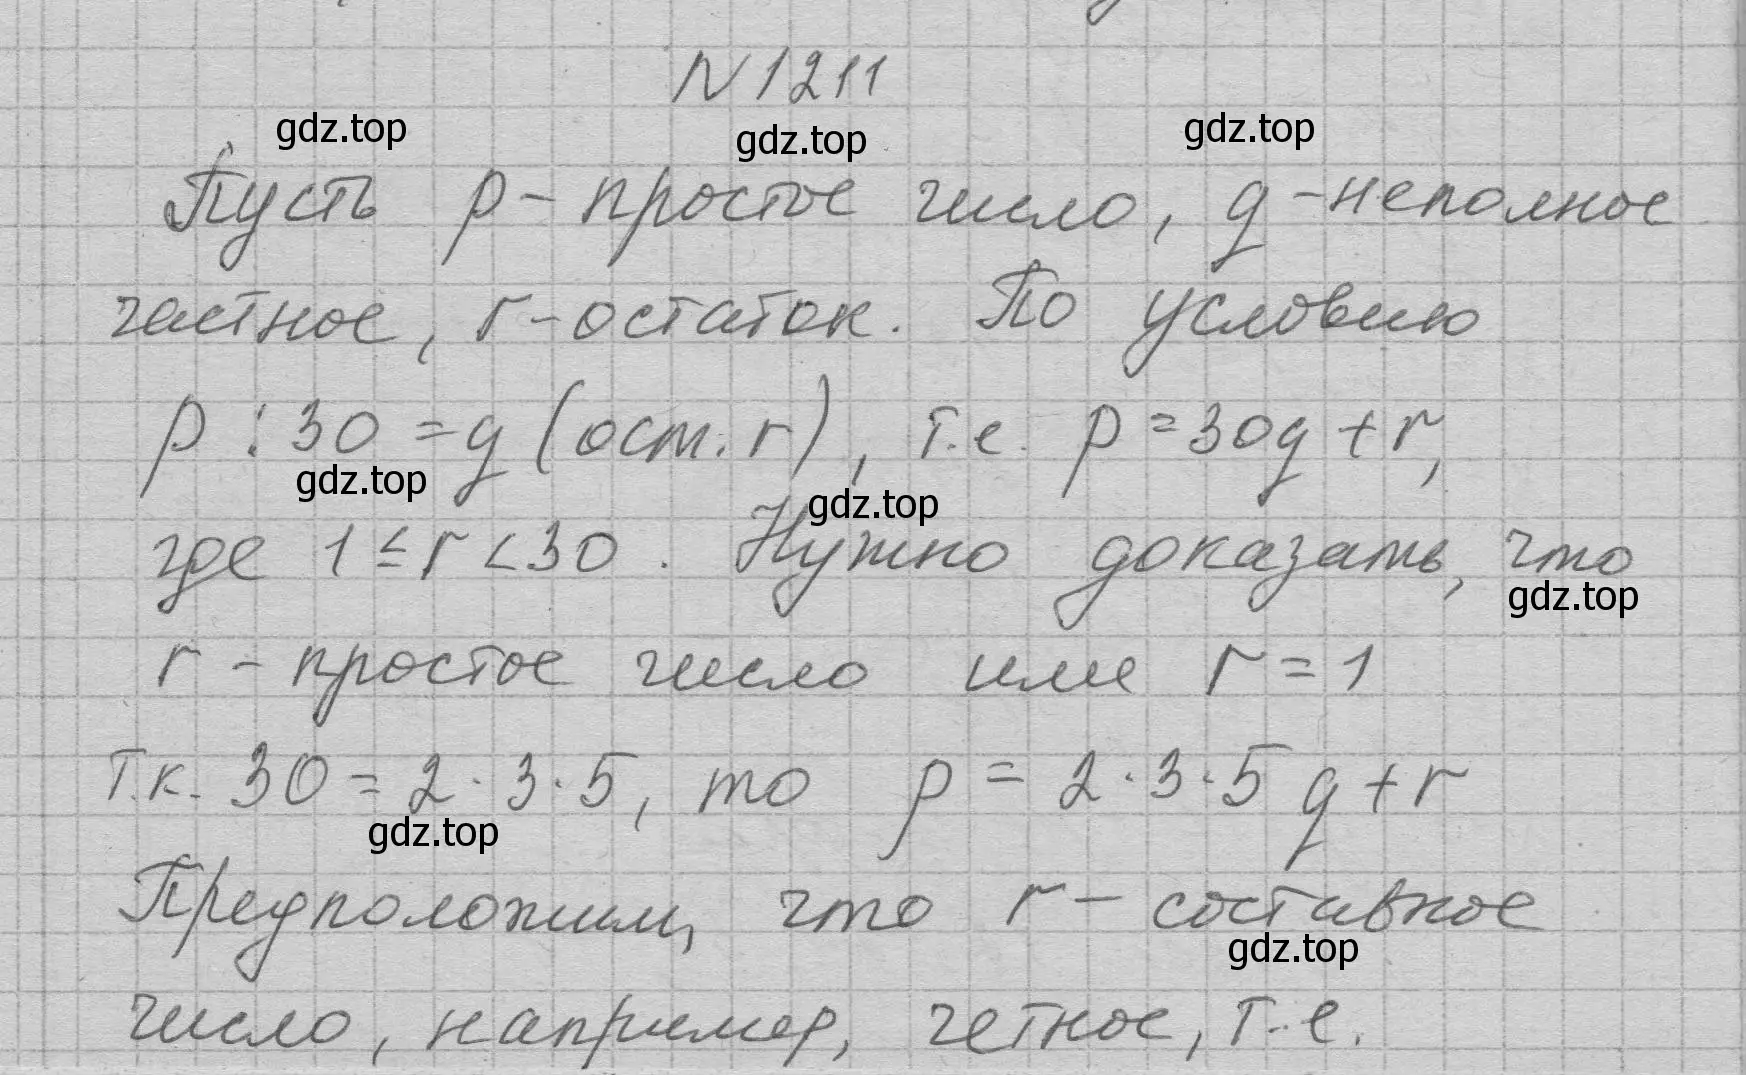 N 1211
gdz.top gdz.top gdz.top
Пусть p - простое число, q - неполное
частное, r - остаток. По условию
p : 30 = q (ост. r), т.е. p = 30q + r,
gdz.top gdz.top
где 1 ≤ r < 30. Нужно доказать, что
gdz.top
r - простое число или r = 1
Т.к. 30 = 2 · 3 · 5, то p = 2 · 3 · 5 q + r
gdz.top
Предположим, что r - составное
gdz.top
число, например, четное, т.е.